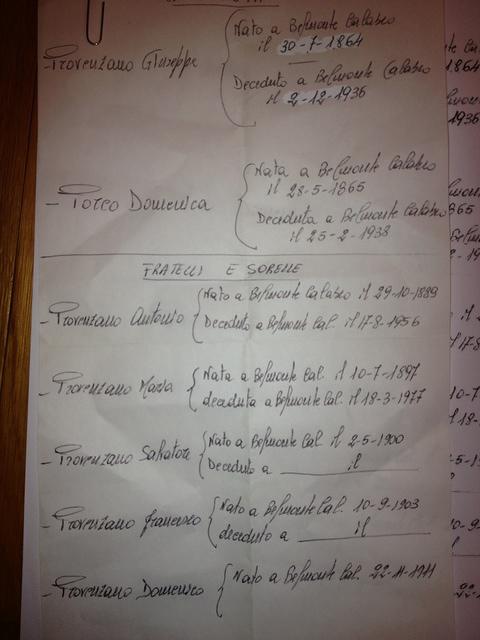 Nato a Belmonte Calabro
Provenzano Giuseppe il 30-7-1864
Deceduto a Belmonte Calabro
il 2-12-1936
Nata a Belmonte Calabro
il 28-5-1865
- Porco Domenica
Deceduta a Belmonte Calabro
il 25-2-1938
FRATELLI E SORELLE
Nato a Belmonte Calabro il 29-10-1889
- Provenzano Antonio
Deceduto a Belmonte Cal. il 17-8-1956
Nata a Belmonte Cal. il 10-7-1897
- Provenzano Maria
deceduta a Belmonte Cal. il 18-3-1977
Nato a Belmonte Cal il 2-5-1900
- Provenzano Salvatore
Deceduto a ____________ il ____________
Nato a Belmonte Cal. 10-9-1903
- Provenzano Francesco
deceduto a ____________ il ____________
Nato a Belmonte Cal. 22-11-1911
- Provenzano Domenico